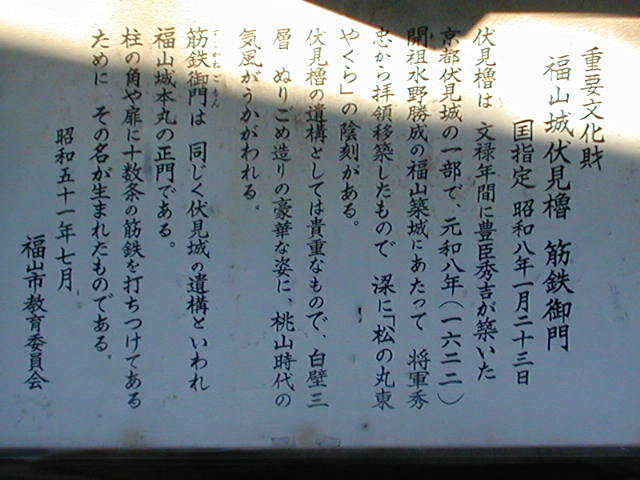 重要文化財
福山城伏見櫓 筋鉄御門
国指定 昭和八年一月二十三日
伏見櫓は 文禄年間に豊臣秀吉が築いた
京都伏見城の一部で、元和八年(一六二二)
開祖水野勝成の福山築城にあたって 将軍秀
忠から拝領移築したもので 梁に「松の丸東
やぐら」の陰刻がある。
伏見櫓の遺構としては貴重なもので、白壁三
層 ぬりごめ造りの豪華な姿に、桃山時代の
気風がうかがわれる。
筋鉄御門は 同じく伏見城の遺構といわれ
福山城本丸の正門である。
柱の角や扉に十数条の筋鉄を打ちつけてある
ために その名が生まれたものである。
昭和五十一年七月
福山市教育委員会